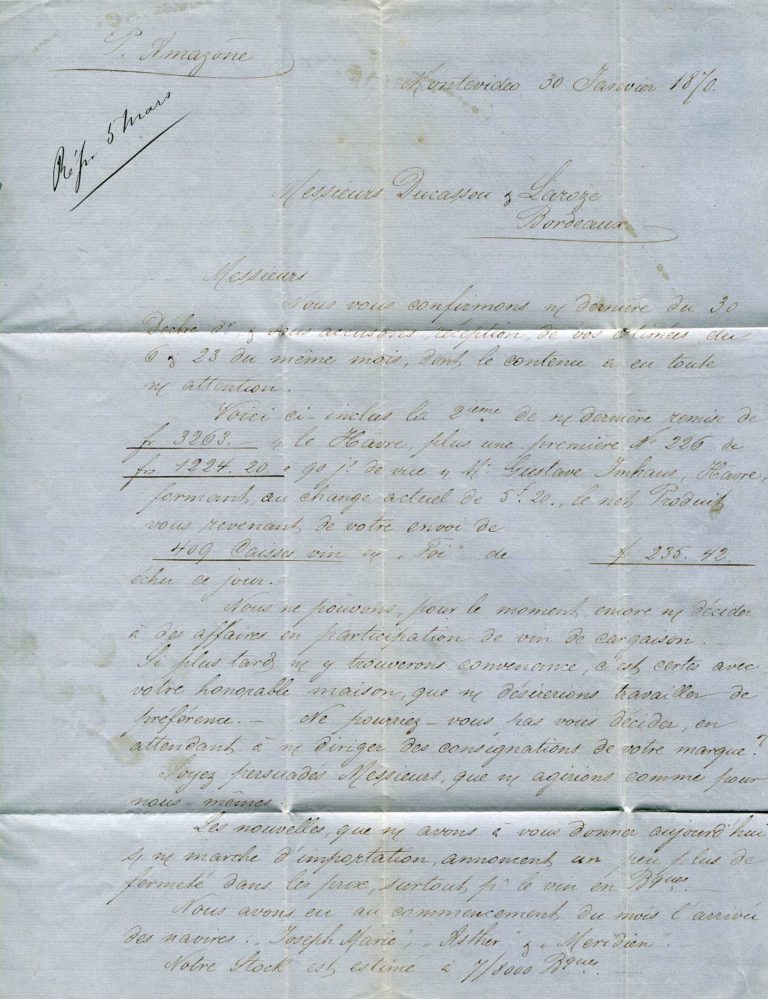 P. Amazone
Montevideo 30 Janvier 1870.
Rép. 5 mars
Messieurs Ducassou & Laroze
Bordeaux
Messieurs
Nous vous confirmons n/ dernière du 30
Décbre dr, & vous accusons réception de vos estimées du
6 & 23 du même mois, dont le contenu a eu toute
n/ attention.
Voici ci inclus la 2eme de n/ dernière remise de
fr 3263.— s/ le Havre, plus une première No 226 de
frs 1224.20. à 90 j. de vue s/ Mr Gustave Imhaus, Havre,
formant, au change actuel de 5f.20., le net Produit
vous revenant de votre envoi de
409 Caisses vin ex „Foi" de 235.42.
échu ce jour.
Nous ne pouvons, pour le moment, encore n/ décider
à des affaires en participation de vin de cargaison.—
Si plus tard n/ y trouverons convenance, c'est certes avec
votre honorable maison, que n/ désirerions travailler de
préférence.— Ne pourriez-vous pas vous décider, en
attendant à n/ diriger des consignations de votre marque?
Soyez persuadés Messieurs, que n/ agirions comme pour
nous-mêmes
Les nouvelles, que n/ avons à vous donner aujourd'hui
s/ n/ marché d'importation, annoncent un peu plus de
fermeté dans les prix, surtout pr le vin en Bques.—
Nous avons eu au commencement du mois l'arrivée
des navires: „Joseph Marie", „Esther" & „Meridien".—
Notre Stock est estimé à 7/8000 Bques.